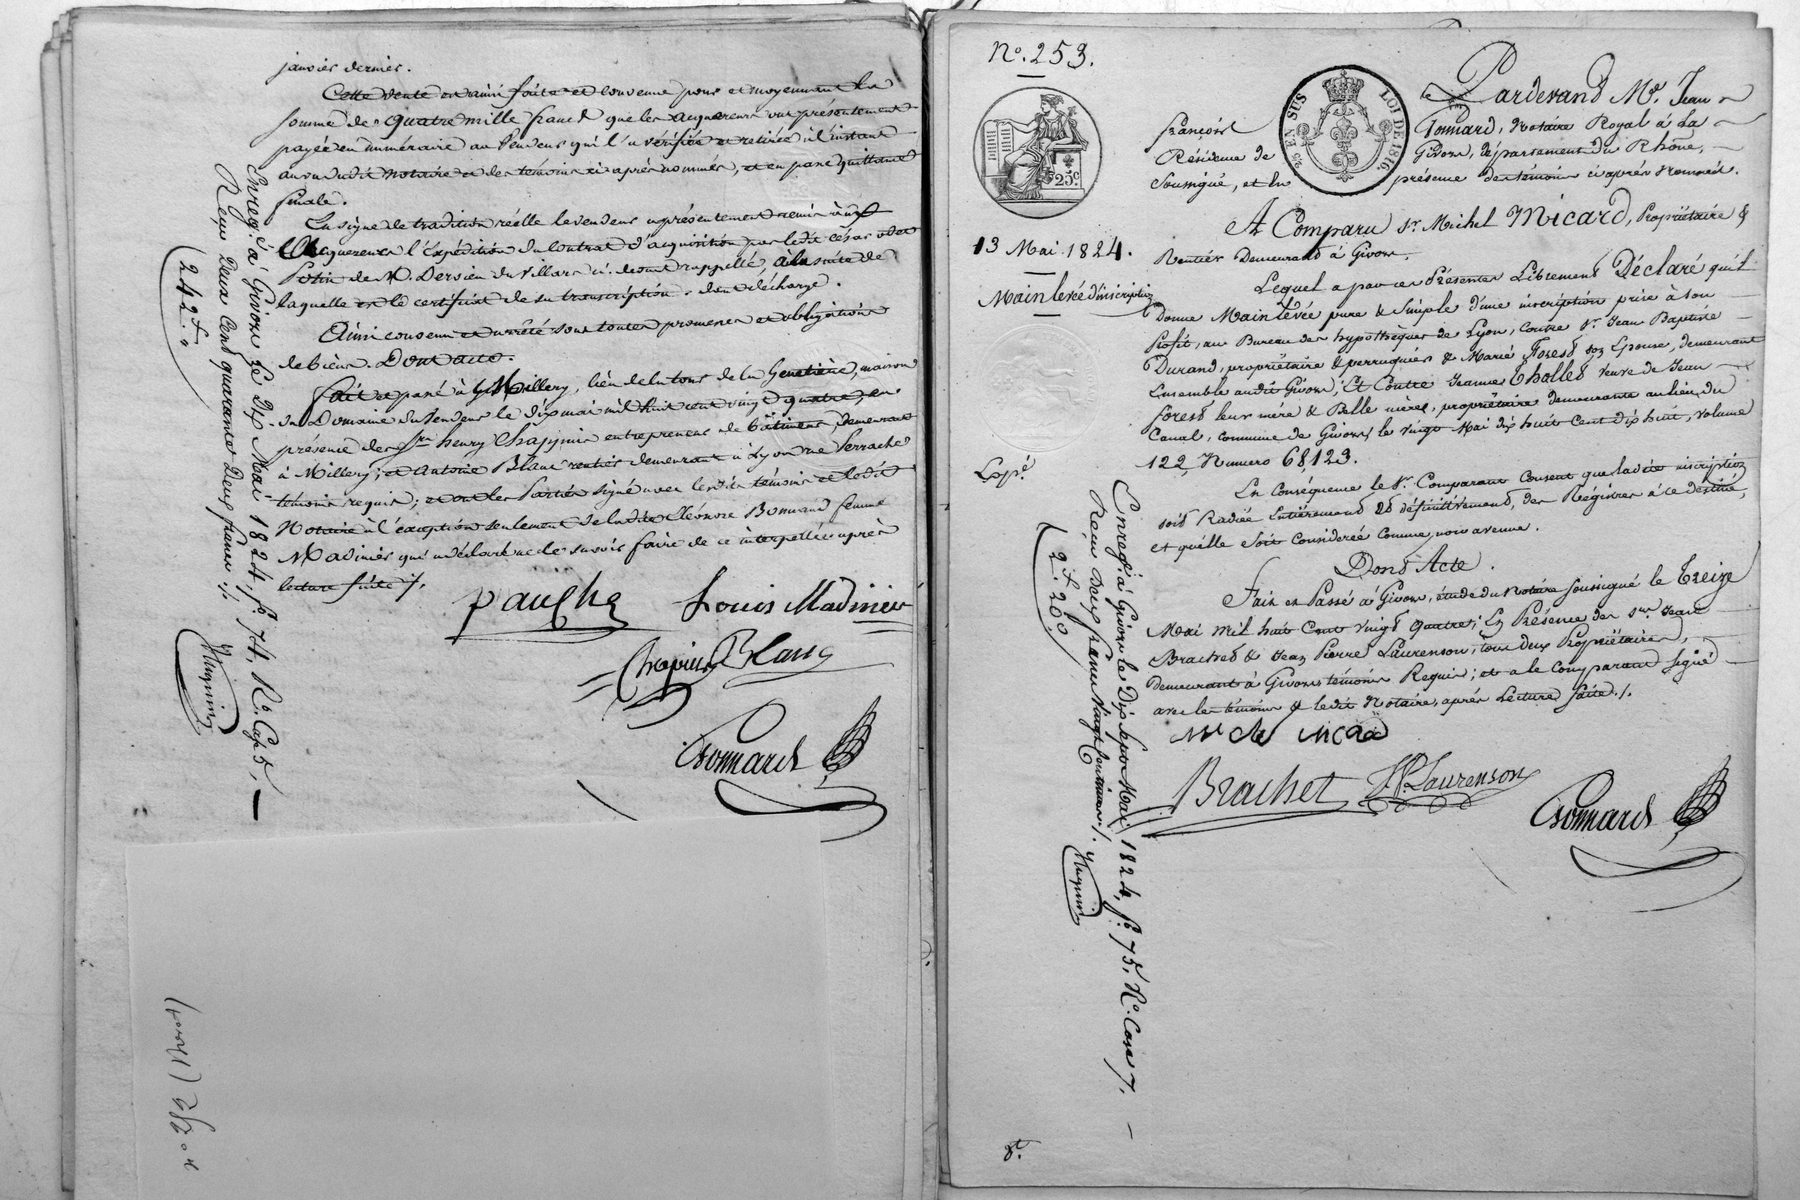 janvier dernier.
Cette vente est ainsi faite et convenue pour et moyennant la
somme de quatre mille francs que les acquereurs ont présentement
payée en numéraire au vendeur qui l'a vérifiée et retirée à l'instant
au vu dudit notaire et des témoins ci après nommés, et en passe quittance
finale.
En signe de tradition réelle le vendeur a présentement remis aux
acquereurs l'expédition du contrat d'acquisition par ledit césar
de M. Dervieu du Villars ci devant rappellé, à la suite de
laquelle est le certificat de sa transcription. dont décharge.
Ainsi convenu et arrêté sous toutes promesses et obligations
de biens. Dont acte.
fait et passé à Millery, lieu de la tour de la Genetière, maison
du Domaine du vendeur le dix mai mil huit cent vingt quatre, en
présence des Srs henry Chappuis entrepreneur de bâtimens, demeurant
à Millery; et Antoine Blanc rentier demeurant à Lyon rue Perrache
témoins requis; et ont les Parties signé avec lesdits témoins et ledit
Notaire à l'exception seulement de ladite Eléonore Bonnand femme
Madinier qui a déclaré ne le savoir faire de ce interpellée après
lecture faite ./.
Louis Madinier
Chapuis Blanc
Tonnard
Enreg.é à Givors le dix Mai 1824, f.o 74, R.o Cas 5,
Reçu deux cent quarante deux francs ./.
242.f
Huguin
N.o 253.
25 EN SUS LOI DE 1816
25.c
13 Mai 1824.
Main levée d'inscription
Exp.é
Pardevant M.e Jean
François Tonnard, Notaire Royal à La
Résidence de Givors, département du Rhône,
Soussigné, et En présence des témoins ci après nommés.
A Comparu S.r Michel Micard, Propriétaire &
Rentier Demeurant à Givors.
Lequel a par ces Présentes Librement Déclaré qu'il
Donne Main Lévée pure & Simple d'une inscription prise à son
Profit, au Bureau des hypothèques de Lyon, contre S.r Jean Baptiste
Durand, propriétaire & perruquier & Marie Forest son Epouse, demeurant
Ensemble audit Givors; Et Contre Jeanne Thollet veuve de Jean
forest leur mère & Belle mère, propriétaire demeurante au lieu du
Canal, commune de Givors, le vingt Mai dix huit Cent dix huit, volume
122, Numero 68,123.
En conséquence le S.r Comparant Consent que ladite inscription
soit Radiée Entièrement & définitivement, des Registres à ce destiné,
et qu'elle soit considérée comme non avenue.
Dont Acte.
Fait et Passé à Givors, étude du Notaire soussigné le treize
Mai mil huit Cent vingt quatre; En Présence des S.rs Jean
Brachet & Jean Pierre Laurenson, tous deux Propriétaires,
demeurant à Givors témoins Requis; et a le comparant signé
avec les témoins & ledit Notaire, après Lecture faite ./.
Brachet J.P. Laurenson
Tonnard
Enreg.é à Givors le Dix sept Mai 1824, f.o 75, R.o Case 7,
Reçu deux francs vingt centimes ./.
2.f 20.c
Huguin